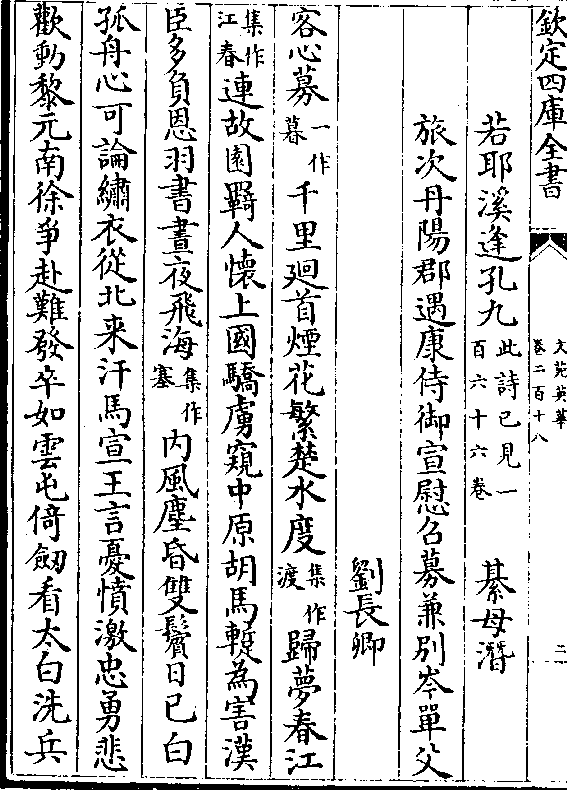 欽定四庫全書
文苑英華
卷二百十八
二
若耶溪逢孔九此詩已見一百六十六卷 綦母潛
旅次丹陽郡遇康侍御宣慰召募兼別岑單父
劉長卿
客心募一作暮千里廻首煙花繁楚水度集作渡歸夢春江
集作江春連故園羇人懷上國驕虜窺中原胡馬蹔為害漢
臣多負恩羽書晝夜飛海集作塞内風塵昏雙鬢日已白
孤舟心可論繡衣從北来汗馬宣王言憂憤激忠勇悲
歡動黎元南徐爭赴難發卒如雲屯倚劒看太白洗兵